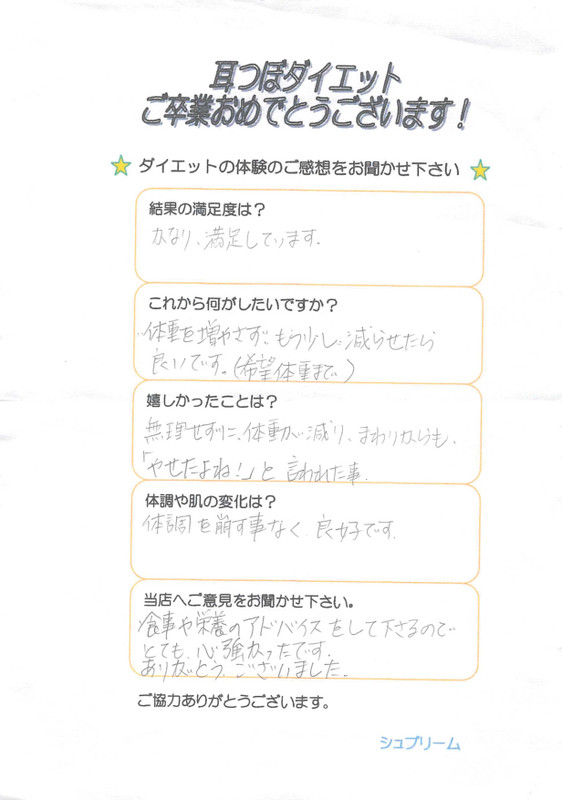 耳つぼダイエット
ご卒業おめでとうございます!
ダイエットの体験のご感想をお聞かせ下さい
結果の満足度は?
かなり、満足しています。
これから何がしたいですか?
体重を増やさず、もう少し減らせたら
良いです。(希望体重まで)
嬉しかったことは?
無理せずに、体動が減り、まわりからも、
「やせたよね!」と言われた事。
体調や肌の変化は?
体調を崩す事なく、良好です。
当店へご意見をお聞かせ下さい。
食事や栄養のアドバイスをして下さるので
とても、心強かったです。
ありがとうございました。
ご協力ありがとうございます。
シュプリーム